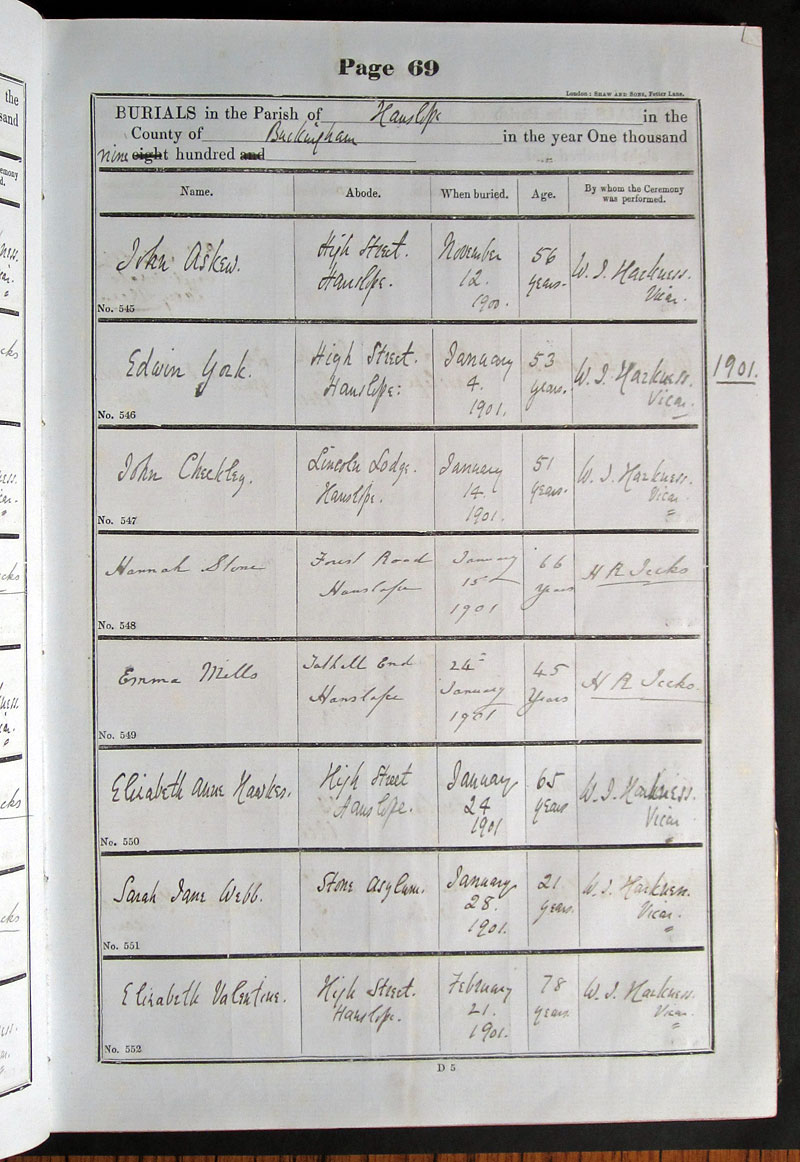 Page 69
London: SHAW AND SONS, Fetter Lane.
BURIALS in the Parish of Hanslope in the
County of Buckingham in the year One thousand
nine eight hundred and
Name. Abode. When buried. Age. By whom the Ceremony
was performed.
John Askew. High Street. November 56 W. J. Harkness.
Hanslope. 12. years. Vicar.
1900.
No. 545
Edwin York. High Street. January 53 W. J. Harkness. 1901.
Hanslope. 4. years. Vicar.
1901.
No. 546
John Checkley. Lincoln Lodge. January 51 W. J. Harkness.
Hanslope. 14. years. Vicar.
1901.
No. 547
Hannah Stone Forest Road January 66 H R Jecks
Hanslope 15th Years
1901
No. 548
Emma Mills Tathall End 24th 45 H R Jecks.
Hanslope January Years
1901
No. 549
Elizabeth Anne Hawkes. High Street January 65 W. J. Harkness.
Hanslope. 24 years Vicar
1901
No. 550
Sarah Jane Webb. Stone Asylum. January 21 W. J. Harkness.
28. years. Vicar.
1901.
No. 551
Elizabeth Valentine. High Street. February 78 W. J. Harkness.
Hanslope. 21. years. Vicar.
1901.
No. 552
D 5